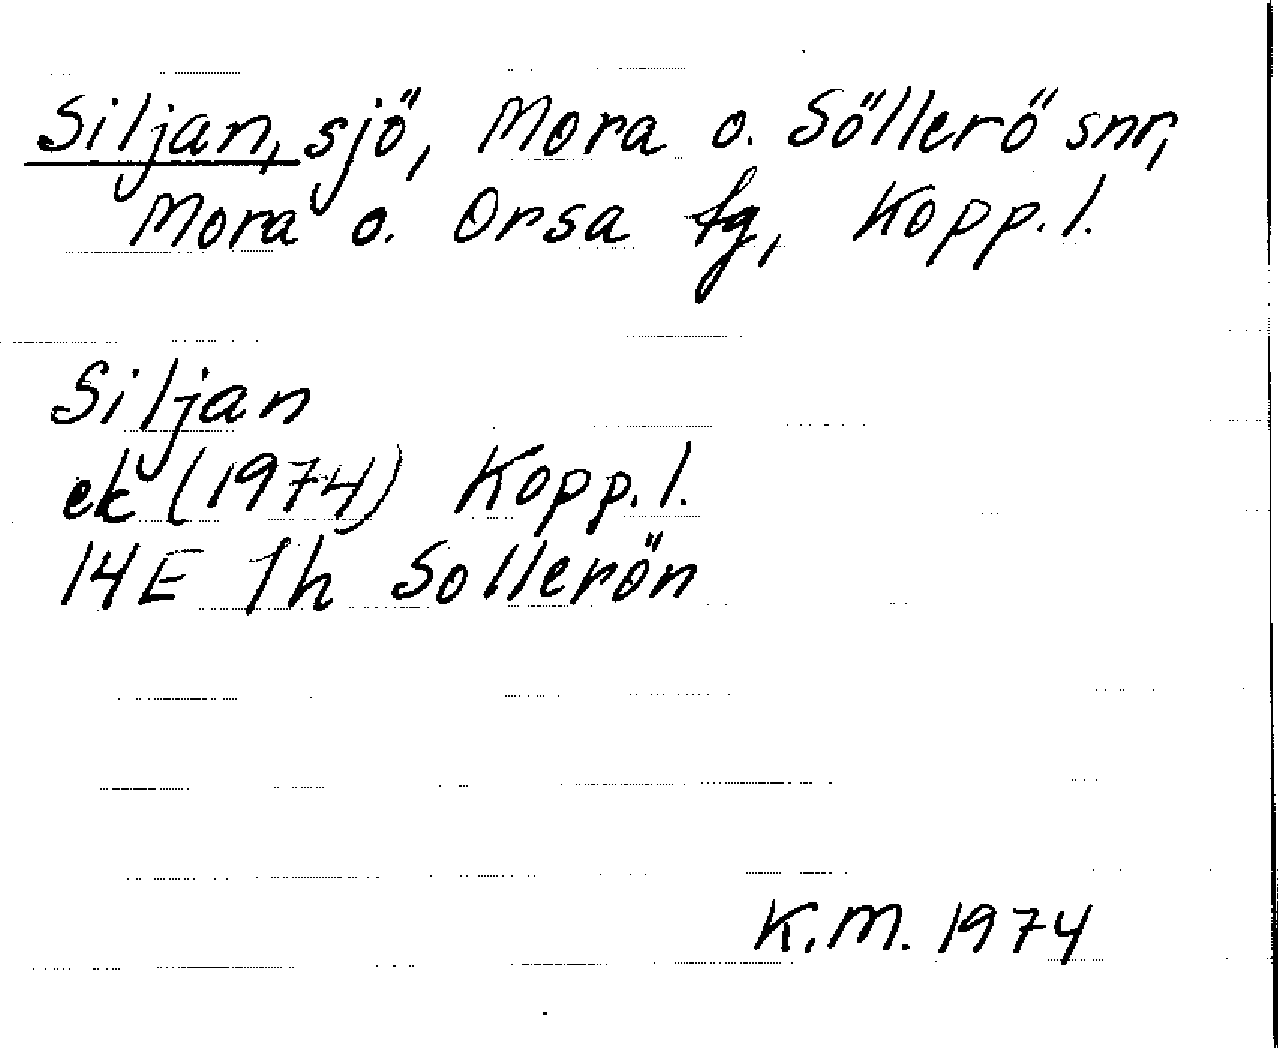 Siljan, sjö, Mora o. Söllerö snr,
Mora o. Orsa fg, Kopp. l.
Siljan
ek (1974) Kopp. l.
14E 1h Sollerön
K.M. 1974